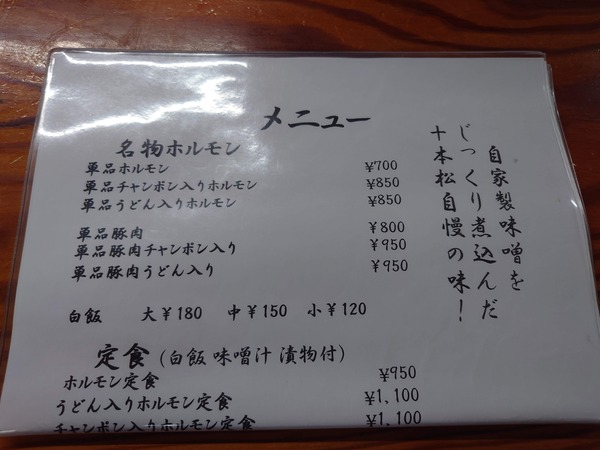 メニュー
自家製味噌を
じっくり煮込んだ
十本松自慢の味!
名物ホルモン
単品ホルモン ¥700
単品チャンポン入りホルモン ¥850
単品うどん入りホルモン ¥850
単品豚肉 ¥800
単品豚肉チャンポン入り ¥950
単品豚肉うどん入り ¥950
白飯 大¥180 中¥150 小¥120
定食(白飯 味噌汁 漬物付)
ホルモン定食 ¥950
うどん入りホルモン定食 ¥1,100
チャンポン入りホルモン定食 ¥1,100